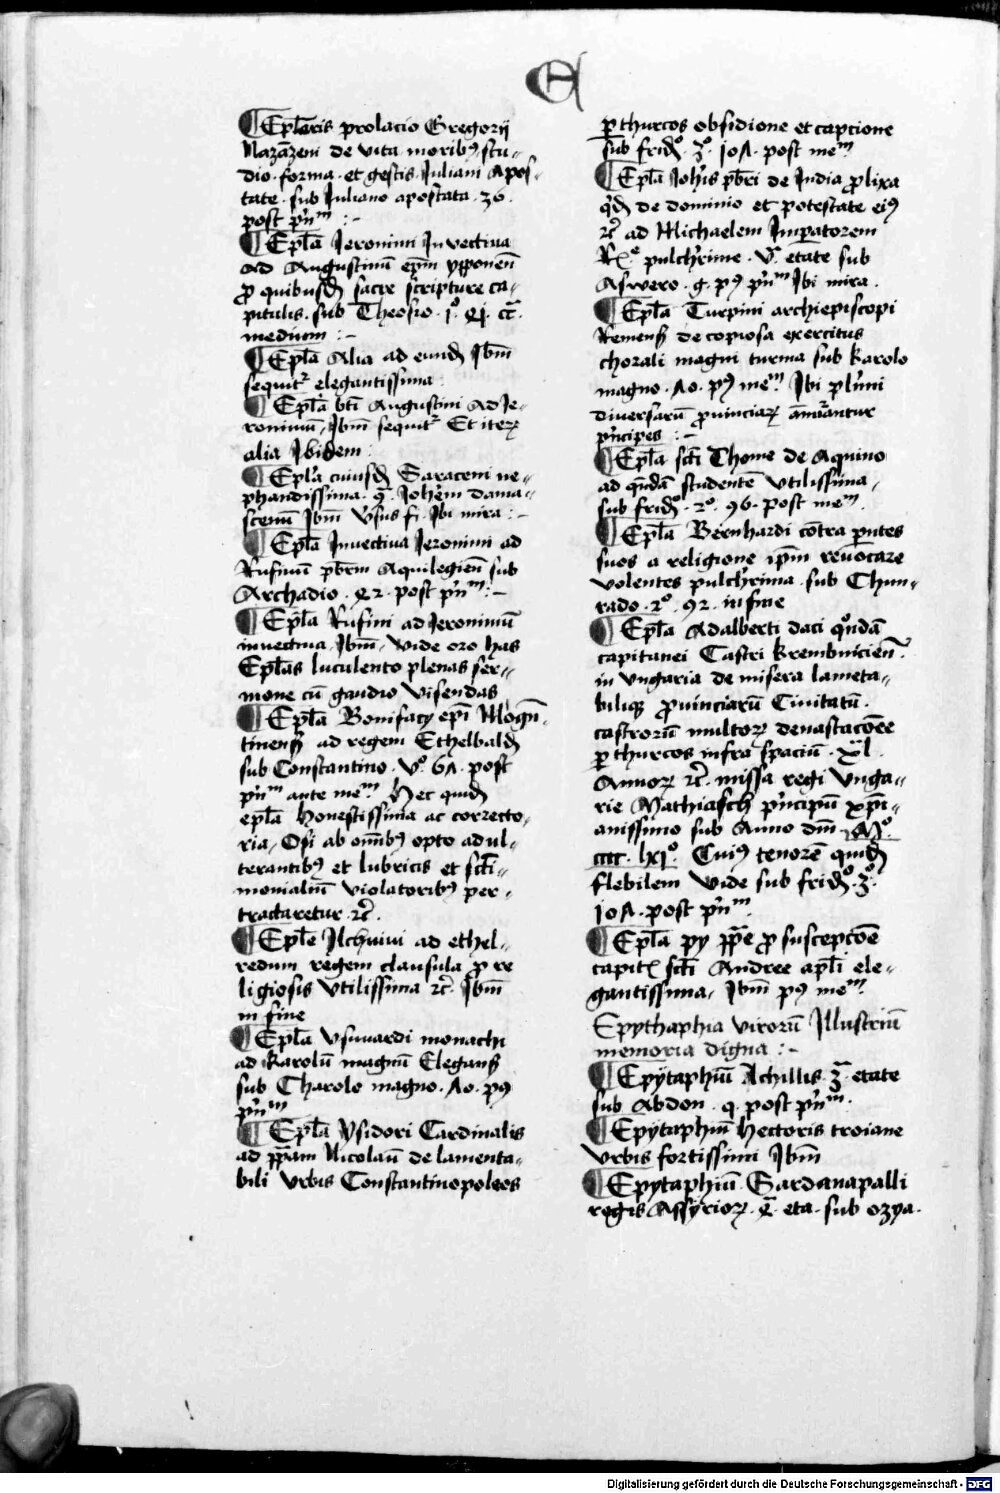 E
¶ Epl̄aris prolacio Gregorij
Nazāzeni de vita moribꝰ stu-
dio forma et gestis Juliani Apos-
tate sub Juliano apostata 36
post pn̄m :-
¶ Epl̄a Jeronimi Invectiva
ad Augustinū epm̄ ypponen̄
ꝓ quibusdā sacre scripture ca-
pitulis sub Theosio
medium :-
¶ Epl̄a Alia ad eundē Ibm̄
sequitr elegantissima
¶ Epl̄a bti Augustini ad Je-
ronimū Ibm̄ sequitr Et iteꝝ
alia Ibidem
¶ Epl̄a cuiusdā Saraceni ne-
phandissima Johēm dama-
scenū Ibm̄ Ibi mira :-
¶ Epl̄a Invectiva Jeronimi ad
Rufinū pbrm̄ Aquilegien̄ sub
Archadio 42 post pn̄m :-
¶ Epl̄a Rufini ad Jeronimū
invectiva Ibm̄ vide oro has
Epl̄as luculento plenas ser-
mone cū gaudio visendas
¶ Epl̄a Bonifacy epi Mogūn-
tinen̄ ad regem Ethelbaldū
sub Constantino v° 61 post
pn̄m ante mem Hec quidē
epl̄a honestissima ac correcto-
ria, Osi ab om̄ibꝰ opto adul-
terantibꝰ et lubricis et scti-
monialiū violatoribꝰ per-
tractaretur ꝛc̄.
¶ Epl̄e Alchuini ad ethel-
redum regem clausula ꝓ re
ligiosis utilissima ꝛc̄ Ibm̄
in fine
¶ Epl̄a Usuuardi monachi
ad Karolū magnū Elegans
sub Charolo magno 10 pꝰ
pn̄m
¶ Epl̄a Ysidori Cardinalis
ad ppam Nicolaū de lamenta-
bili urbis Constantinopoleos
ꝑ thurcos obsidione et capcione
sub frid° 3° 101 post mem
¶ Epl̄a Johis pbri de India ꝓlixa
de dominio et potestate eiꝰ
ꝛc̄ ad Michaelem Imperatorem
pulchrime v etate sub
Aswero 9 pꝰ pn̄m Ibi mira
¶ Epl̄a Turpini archiepiscopi
Remens de copiosa exercitus
chorali magni turma sub karolo
magno 10 pꝰ mem Ibi plimi
diversarū ꝓvinciaꝝ
pncipes :-
¶ Epl̄a scti Thome de Aquino
ad qndā studentē utilissima
sub frid° 2° 96 post mem
¶ Epl̄a Bernhardi cōtra pntes
suos a religione ipm̄ revocare
volentes pulchrima sub Chun-
rado 2° 92 in fine
¶ Epl̄a Adalberti daci qōndā
capitanei Castri Krembnicien̄
in Ungaria de misera lameta-
biliqꝫ ꝓvinciarū Civitatū
castrorū multoꝝ devastacōee
ꝑ thurcos infra spaciū xl
Annoꝝ ꝛc̄ missa regi Unga-
rie Mathiasch pncipū xpi-
anissimo sub Anno dni M°
cccc lxj° Cuiꝰ tenorē quidē
flebilem vide sub frid° 3°
101 post pn̄m
¶ Epl̄a py ppe ꝓ suscepcōe
capitꝭ scti Andree apl̄i ele-
gantissima, Ibm̄ pꝰ mem
Epythaphia virorū Illustriū
memoria digna :-
¶ Epytaphiū Achillis 3 etate
sub Abdon 9 post pn̄m
¶ Epytaphiū Hectoris troiane
urbis fortissimi Ibm̄
¶ Epytaphiū Sardanapalli
regis Assyrioꝝ 4 eta sub ozya
Digitalisierung gefördert durch die Deutsche Forschungsgemeinschaft - DFG